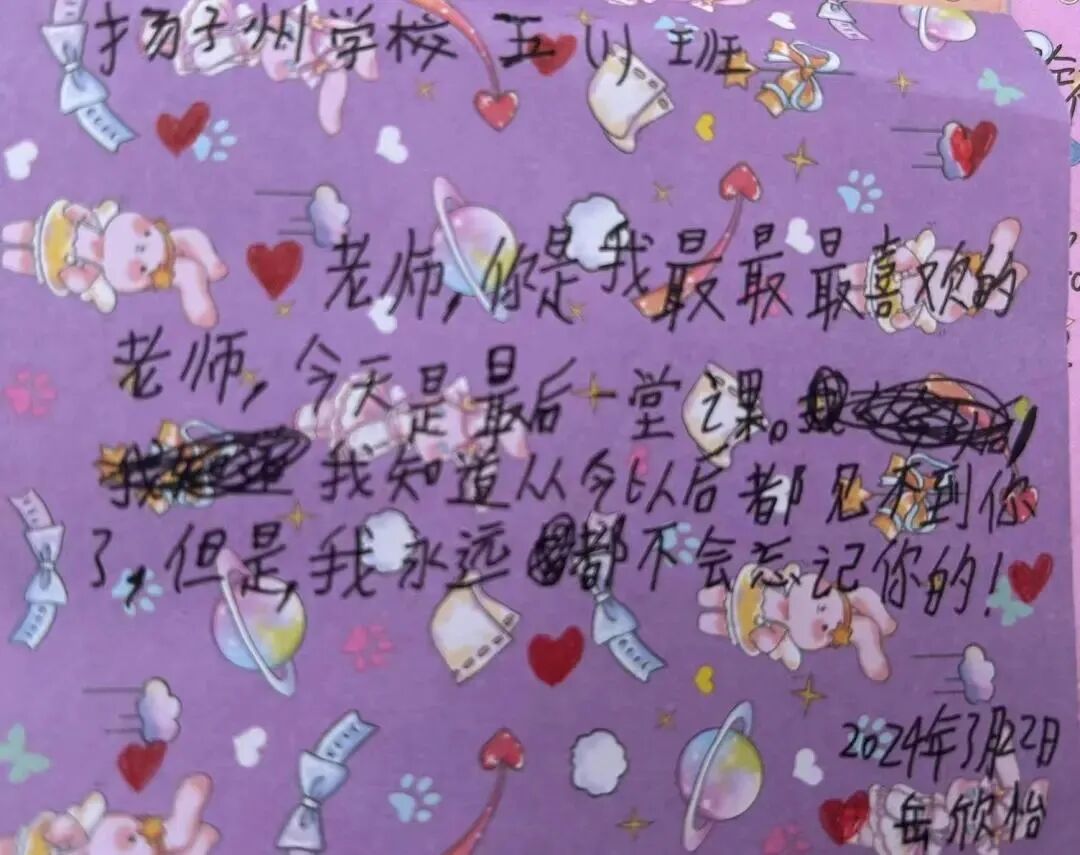 扬子州学校 五(1)班
老师,你是我最最最喜欢的
老师,今天是最后一堂课。
我知道从今以后都见不到你
了,但是,我永远都不会忘记你的!
2024年3月22日
岳欣怡